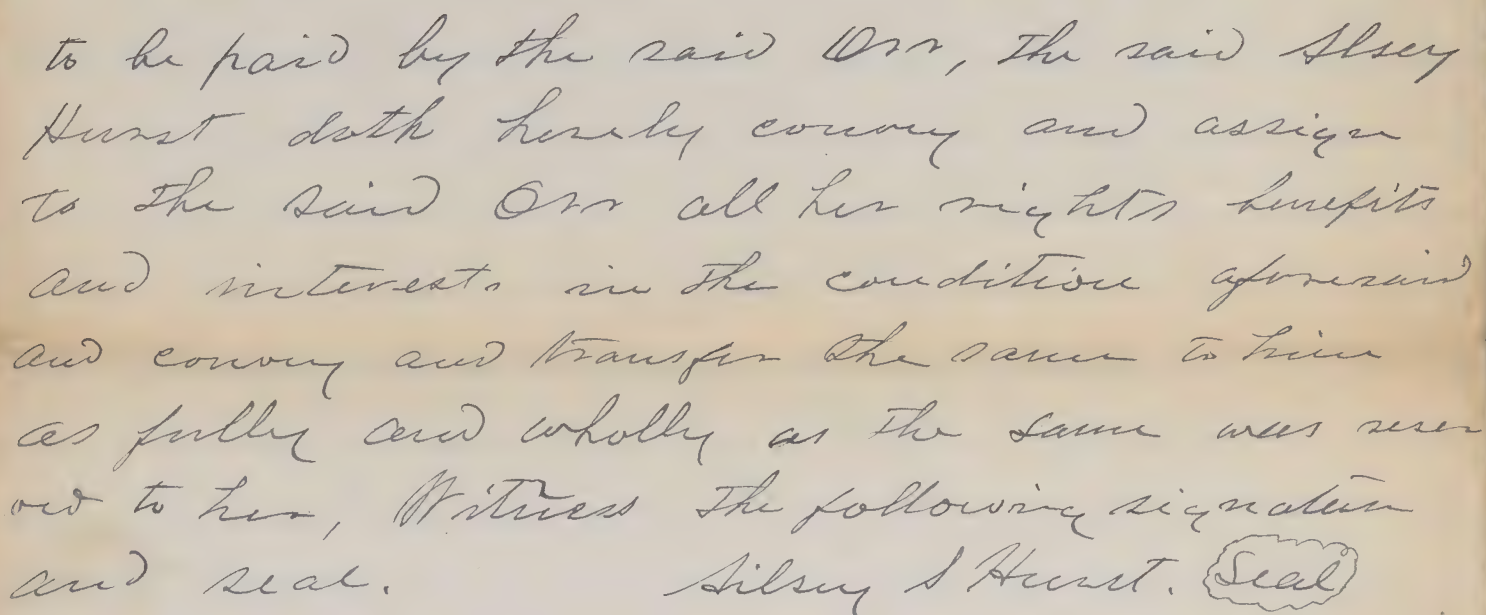 to be paid by the said Orr, the said Alsey
Hurst doth hereby convey and assign
to the said Orr all her rights benefits
and interests in the condition aforesaid
and convey and transfer the same to him
as fully and wholly as the same was reser
ved to her, Witness the following signature
and seal. Silsey S Hurst. Seal